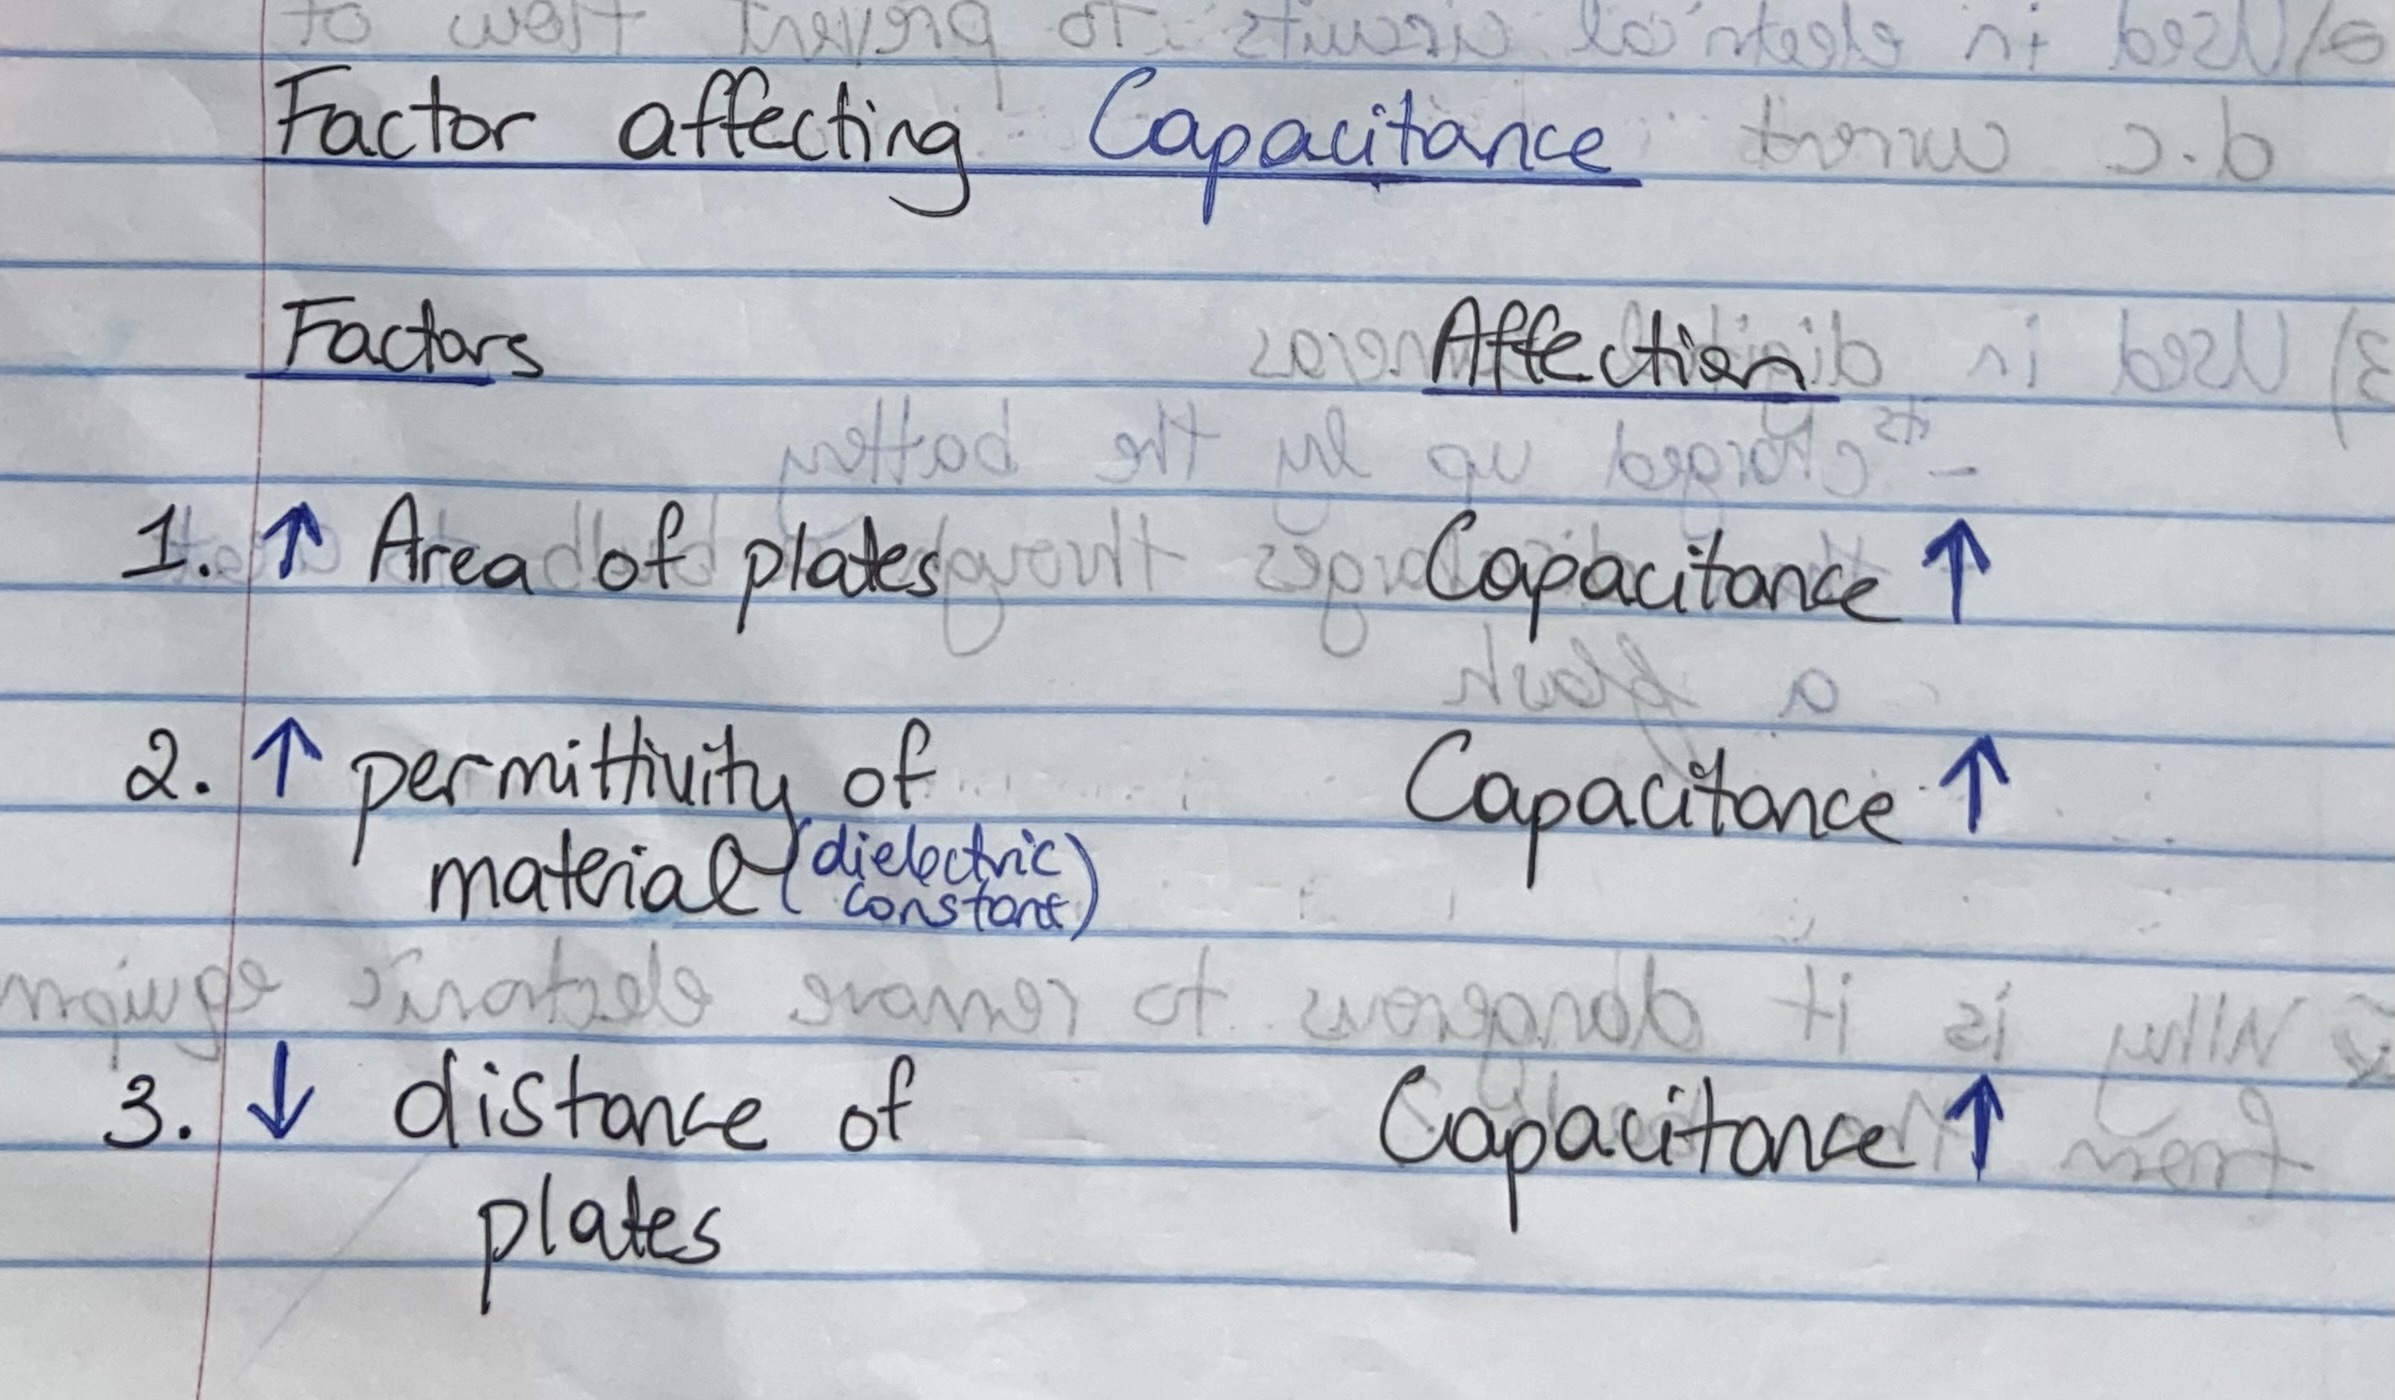 Factor affecting Capacitance
Factors Affection
1. ↑ Area of plates Capacitance ↑
2. ↑ permittivity of Capacitance ↑
material (dielectric
constant)
3. ↓ distance of Capacitance ↑
plates